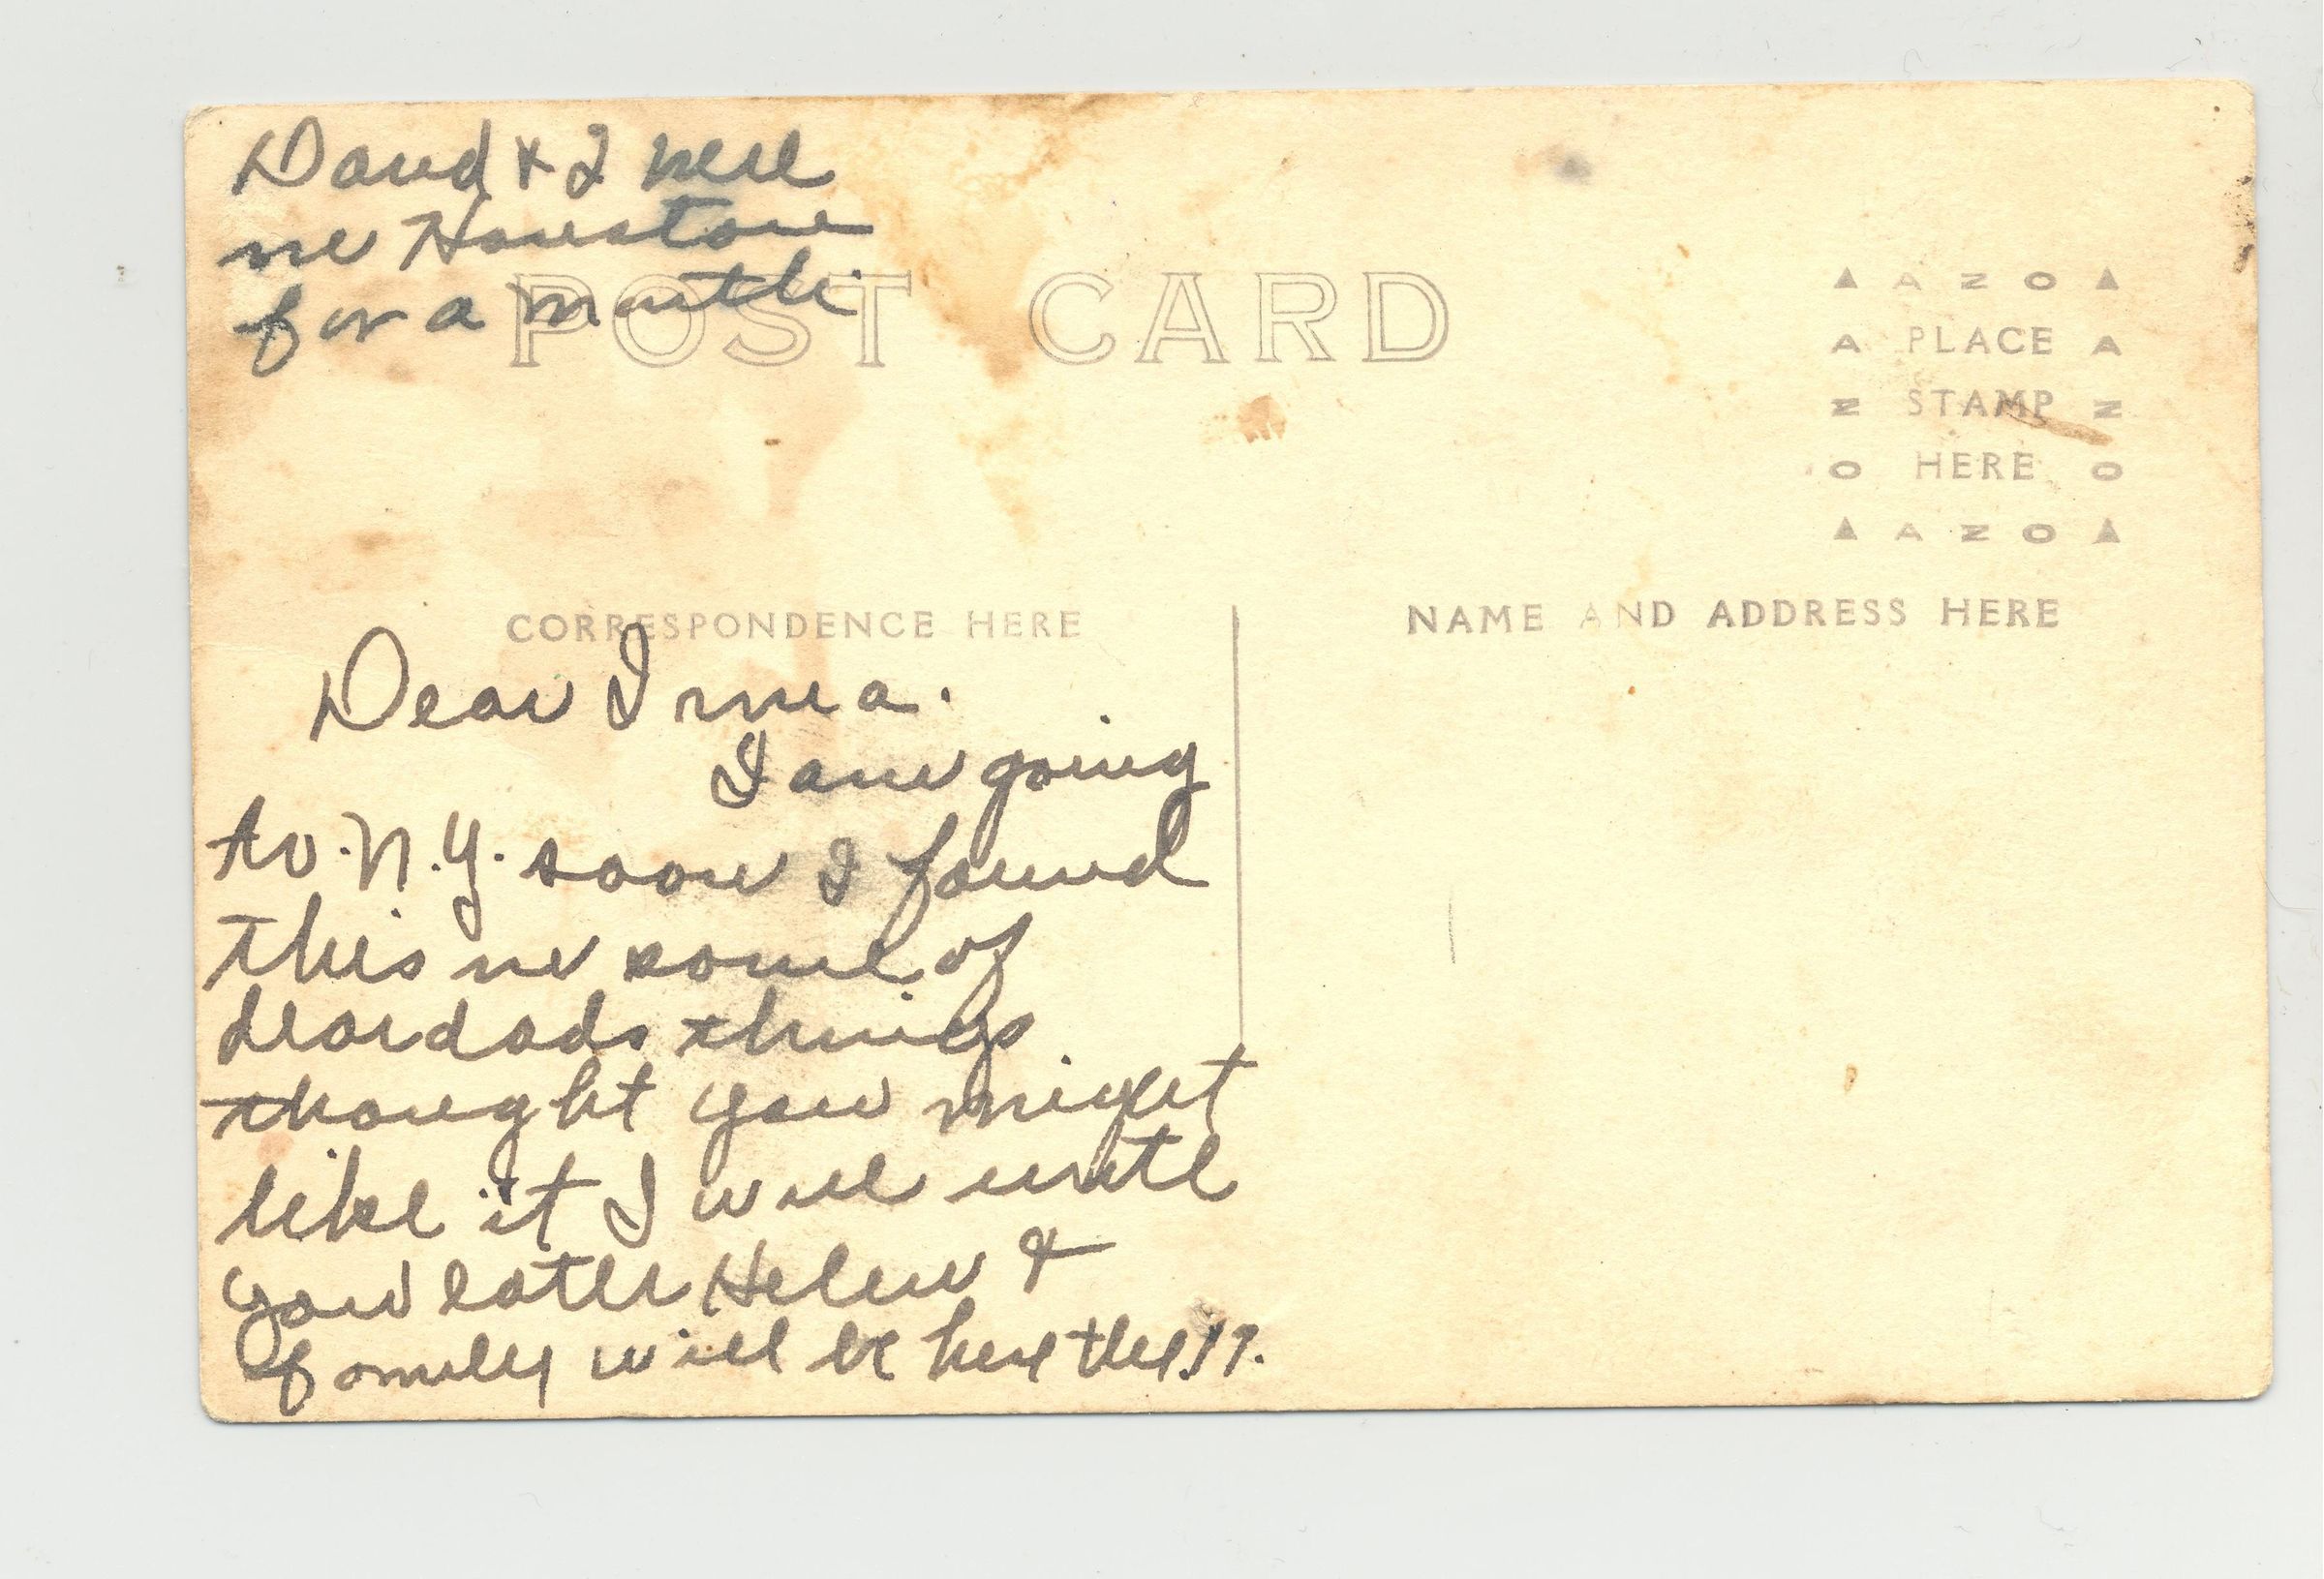 David & I were
in Houston
for a month.
POST CARD
▲ A Z O ▲
A PLACE A
N STAMP N
O HERE O
▲ A Z O ▲
CORRESPONDENCE HERE
NAME AND ADDRESS HERE
Dear Irma.
I am going
to. N.Y. soon I found
this in some of
dear dads things
thought you might
like it I will write
you later Helen &
family will be here the 17.